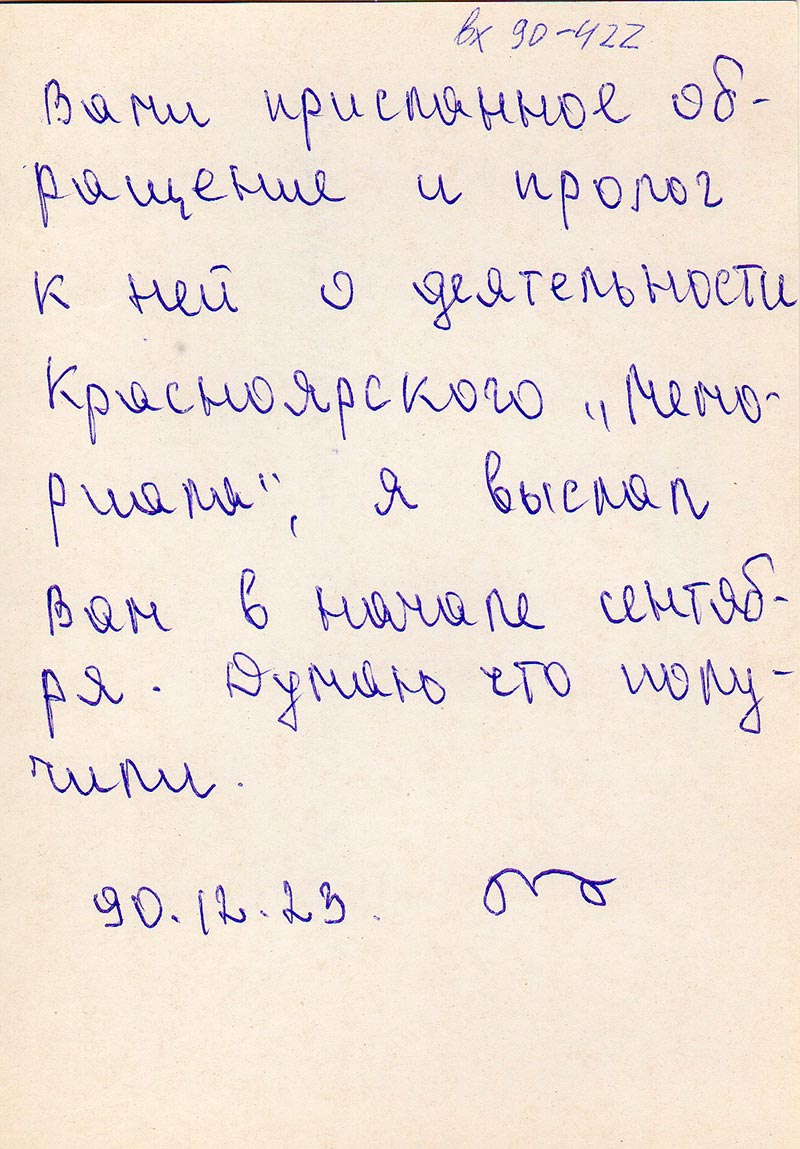 вх 90-422
Вами присланное об-
ращение и пролог
к ней о деятельности
Красноярского „Мемо-
риала", я выслал
Вам в начале сентяб-
ря. Думаю что полу-
чили.
90.12.23.